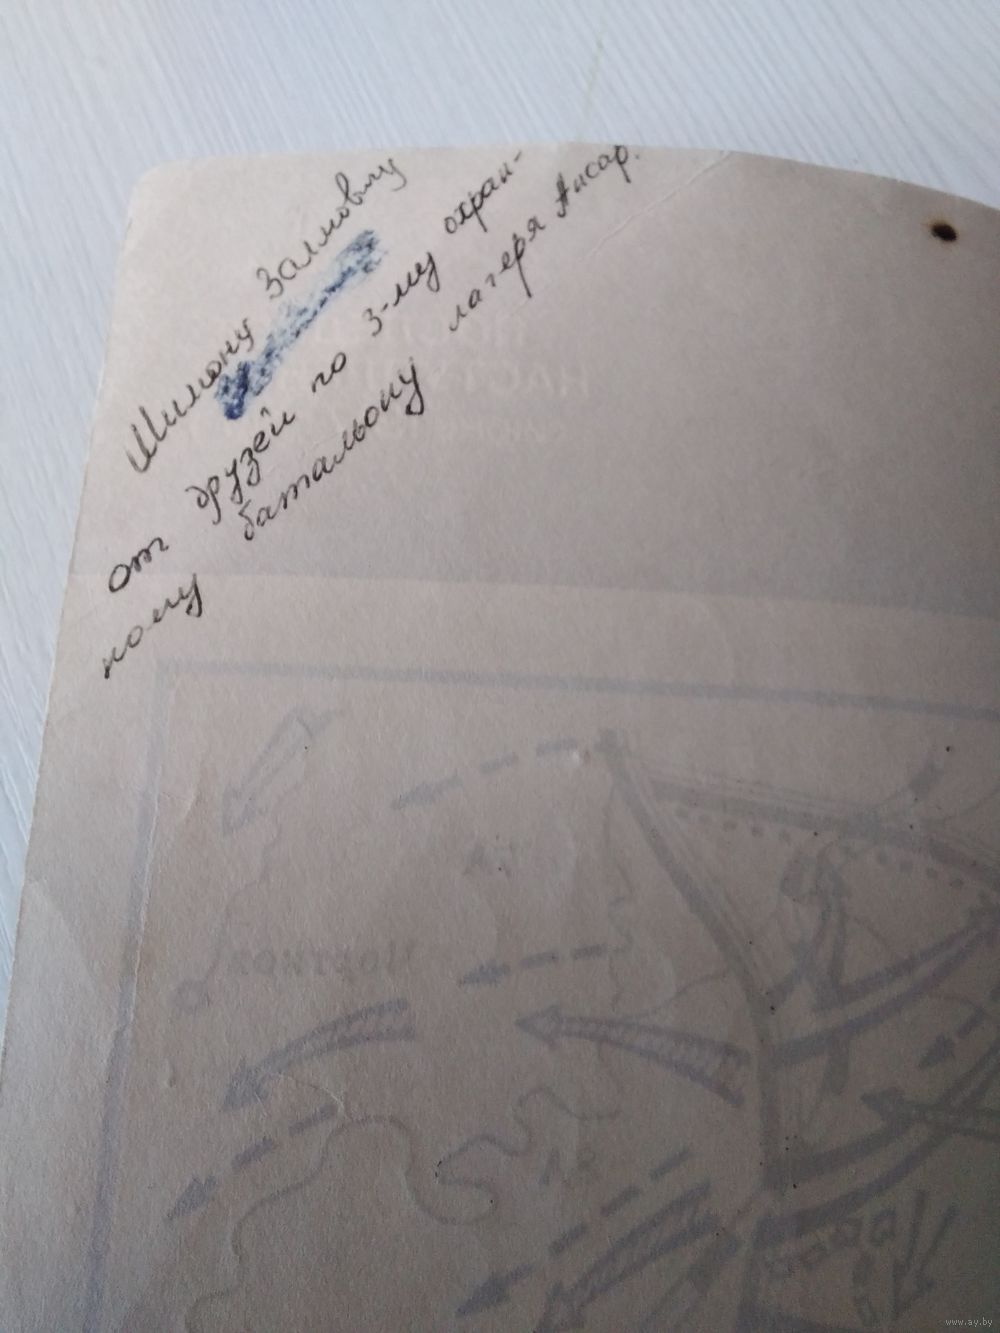 Шимону Залмовичу
от друзей по 3-му охран-
ному батальону лагеря Ансар.
www.ay.by